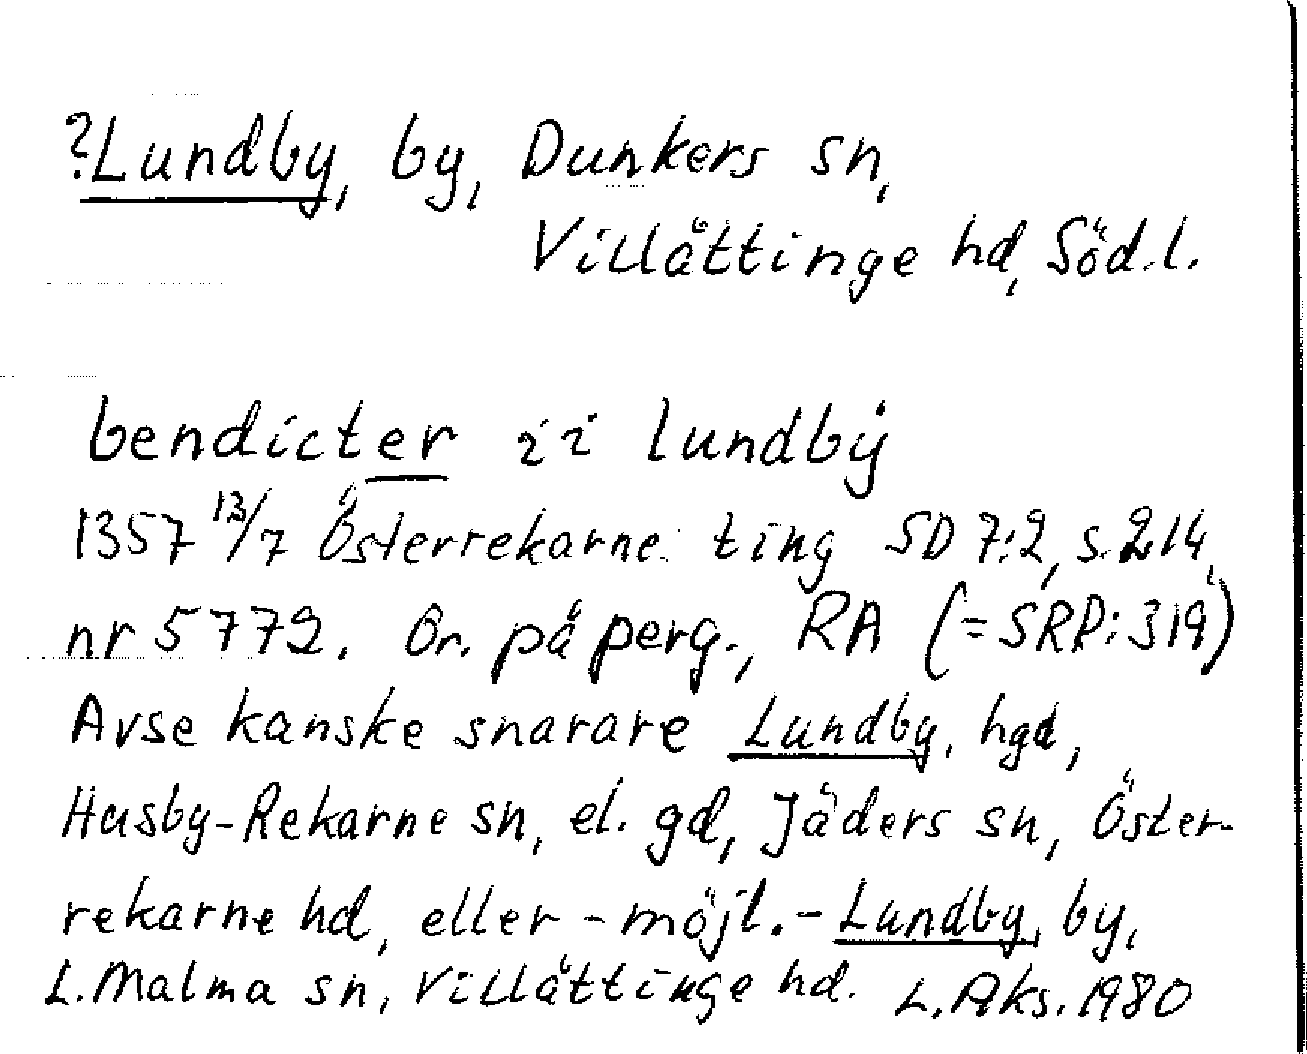 ?Lundby, by, Dunkers sn,
Villåttinge hd, Söd.l.
bendicter ii lundbÿ
1357 13/7 Österrekarne ting SD 7:2, s. 214,
nr 5772. Or. på perg., RA (=SRP: 319)
Avse kanske snarare Lundby, hgd,
Husby-Rekarne sn, el. gd, Jäders sn, Öster-
rekarne hd, eller - möjl. - Lundby, by,
L. Malma sn, Villåttinge hd. L. Aks. 1980